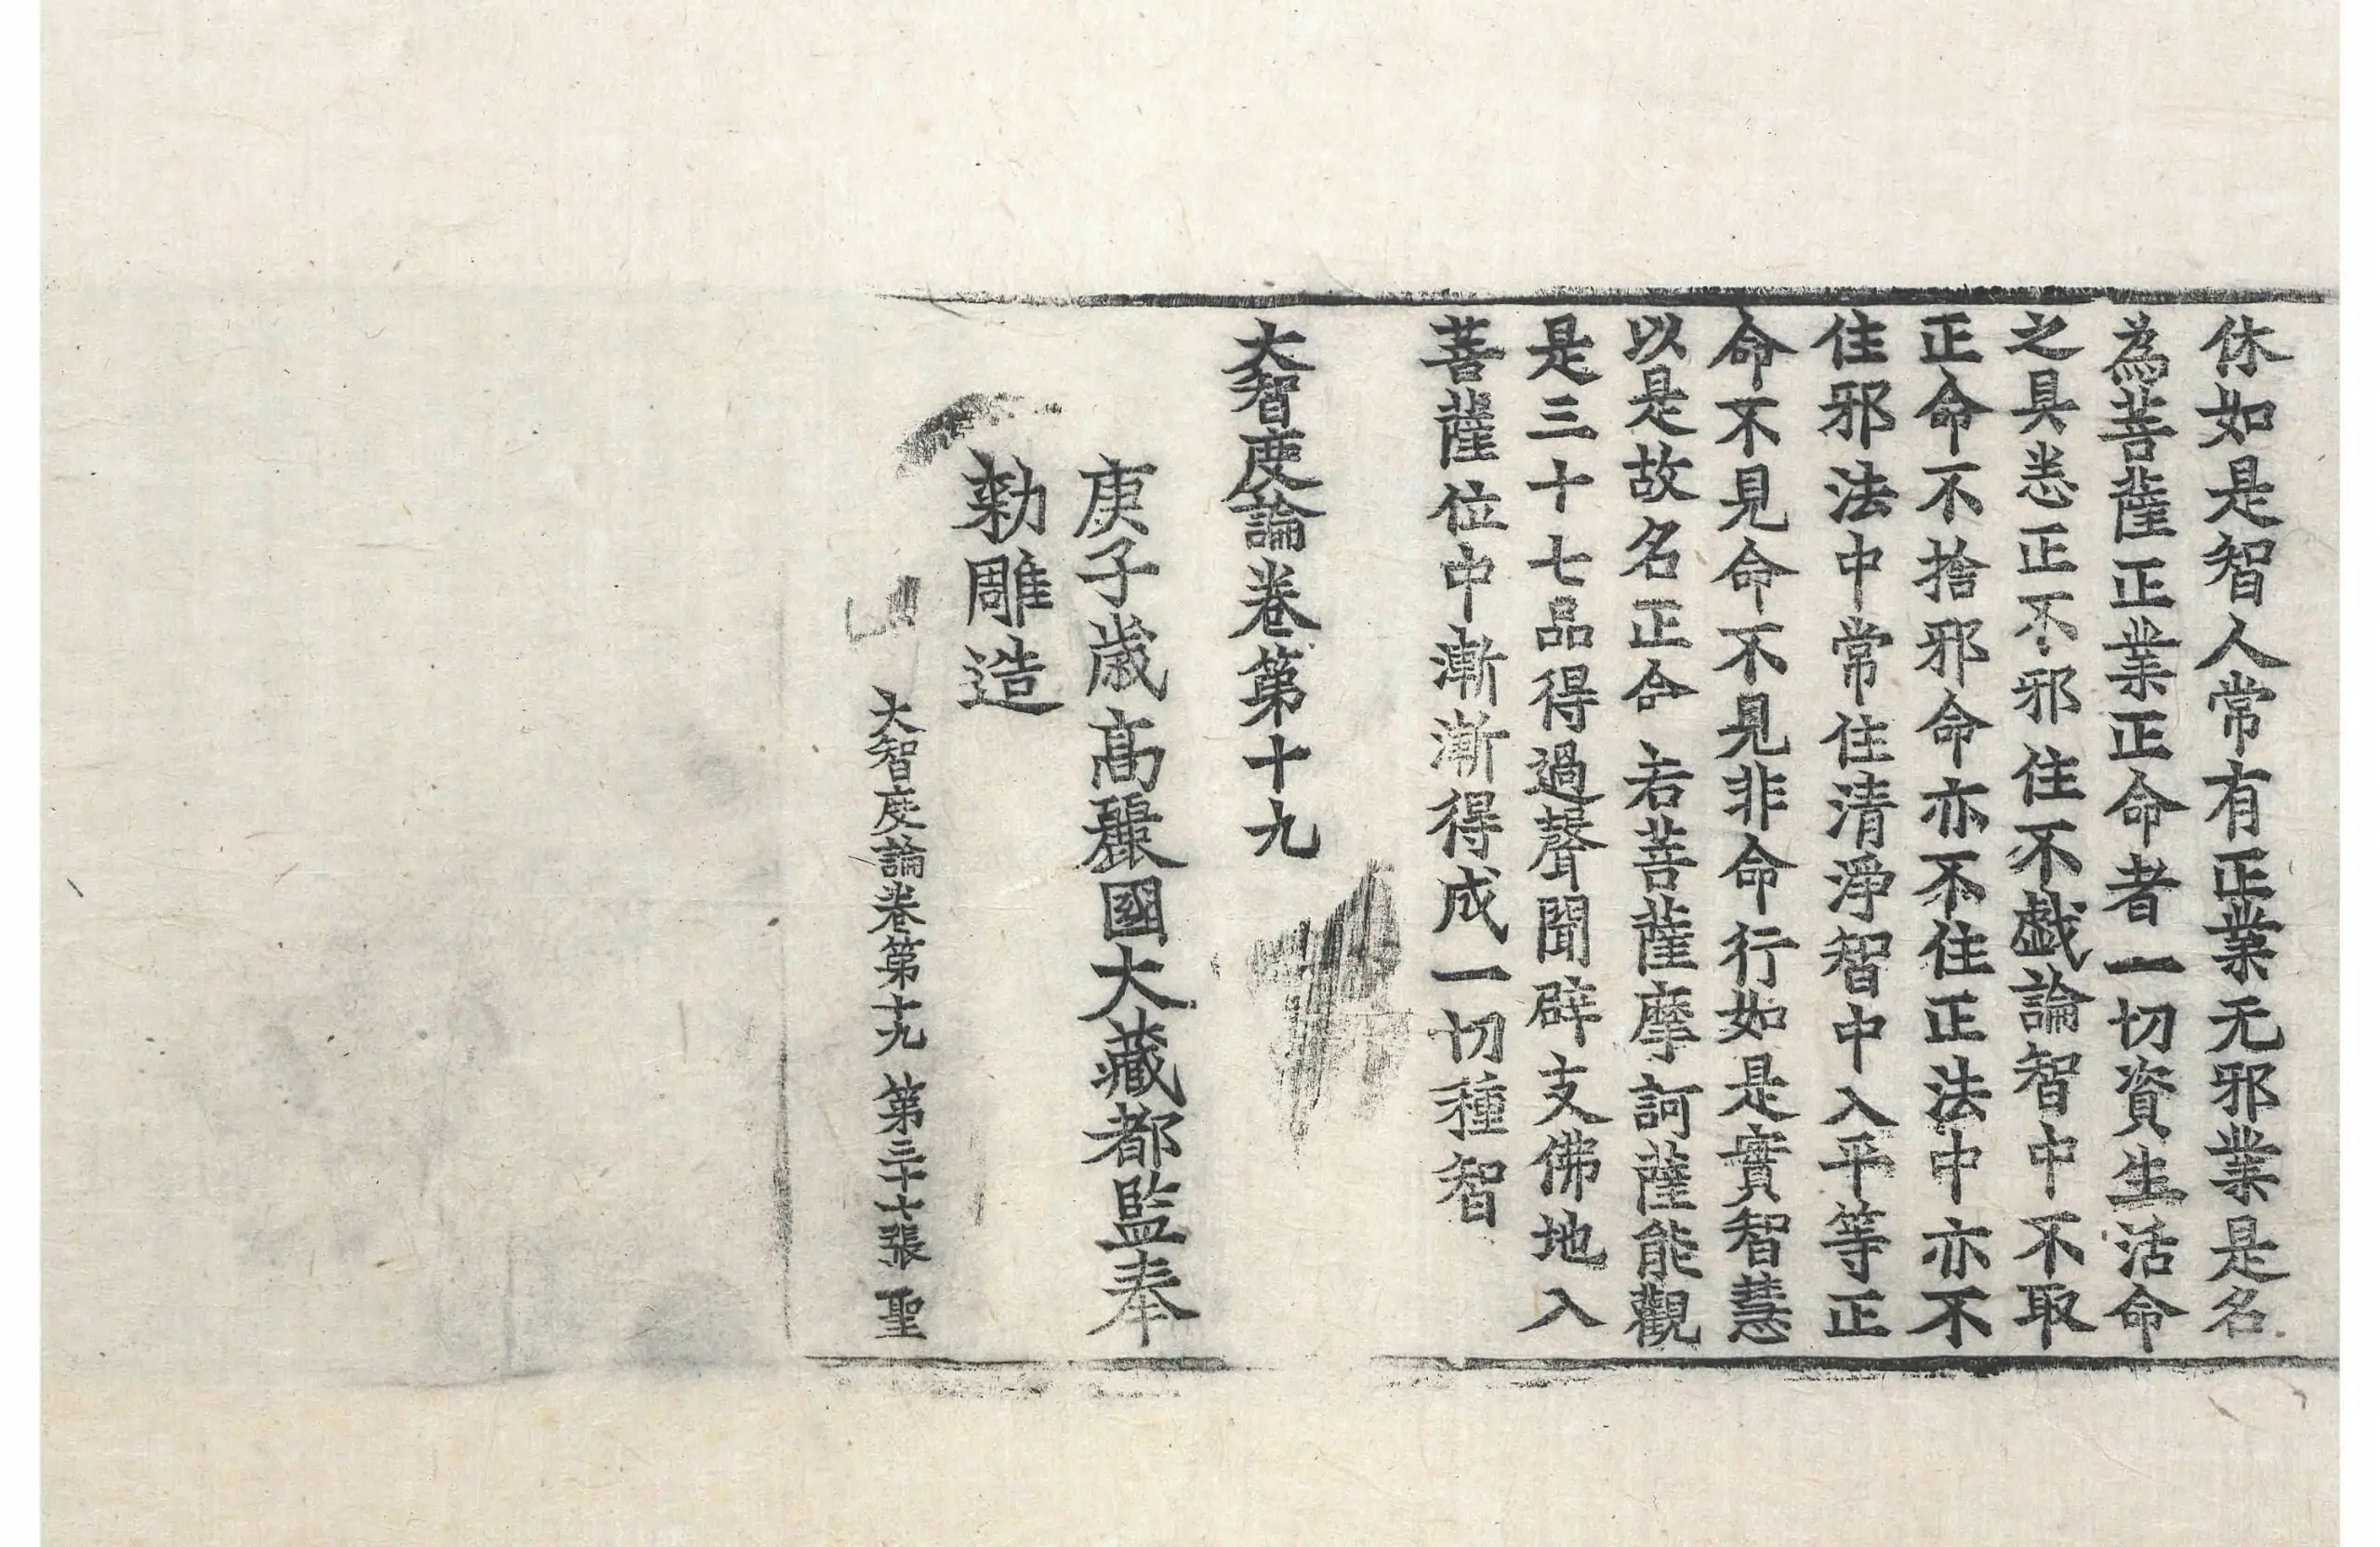 休如是智人常有正業无邪業是名
為菩薩正業正命者一切資生活命
之具悉正不邪住不戱論智中不取
正命不捨邪命亦不住正法中亦不
住邪法中常住清淨智中入平等正
命不見命不見非命行如是實智慧
以是故名正命若菩薩摩訶薩能觀
是三十七品得過聲聞辟支佛地入
菩薩位中漸漸得成一切種智
大智度論卷第十九
庚子歲高麗國大藏都監奉
勑雕造
大智度論卷第十九 第三十七張 聖